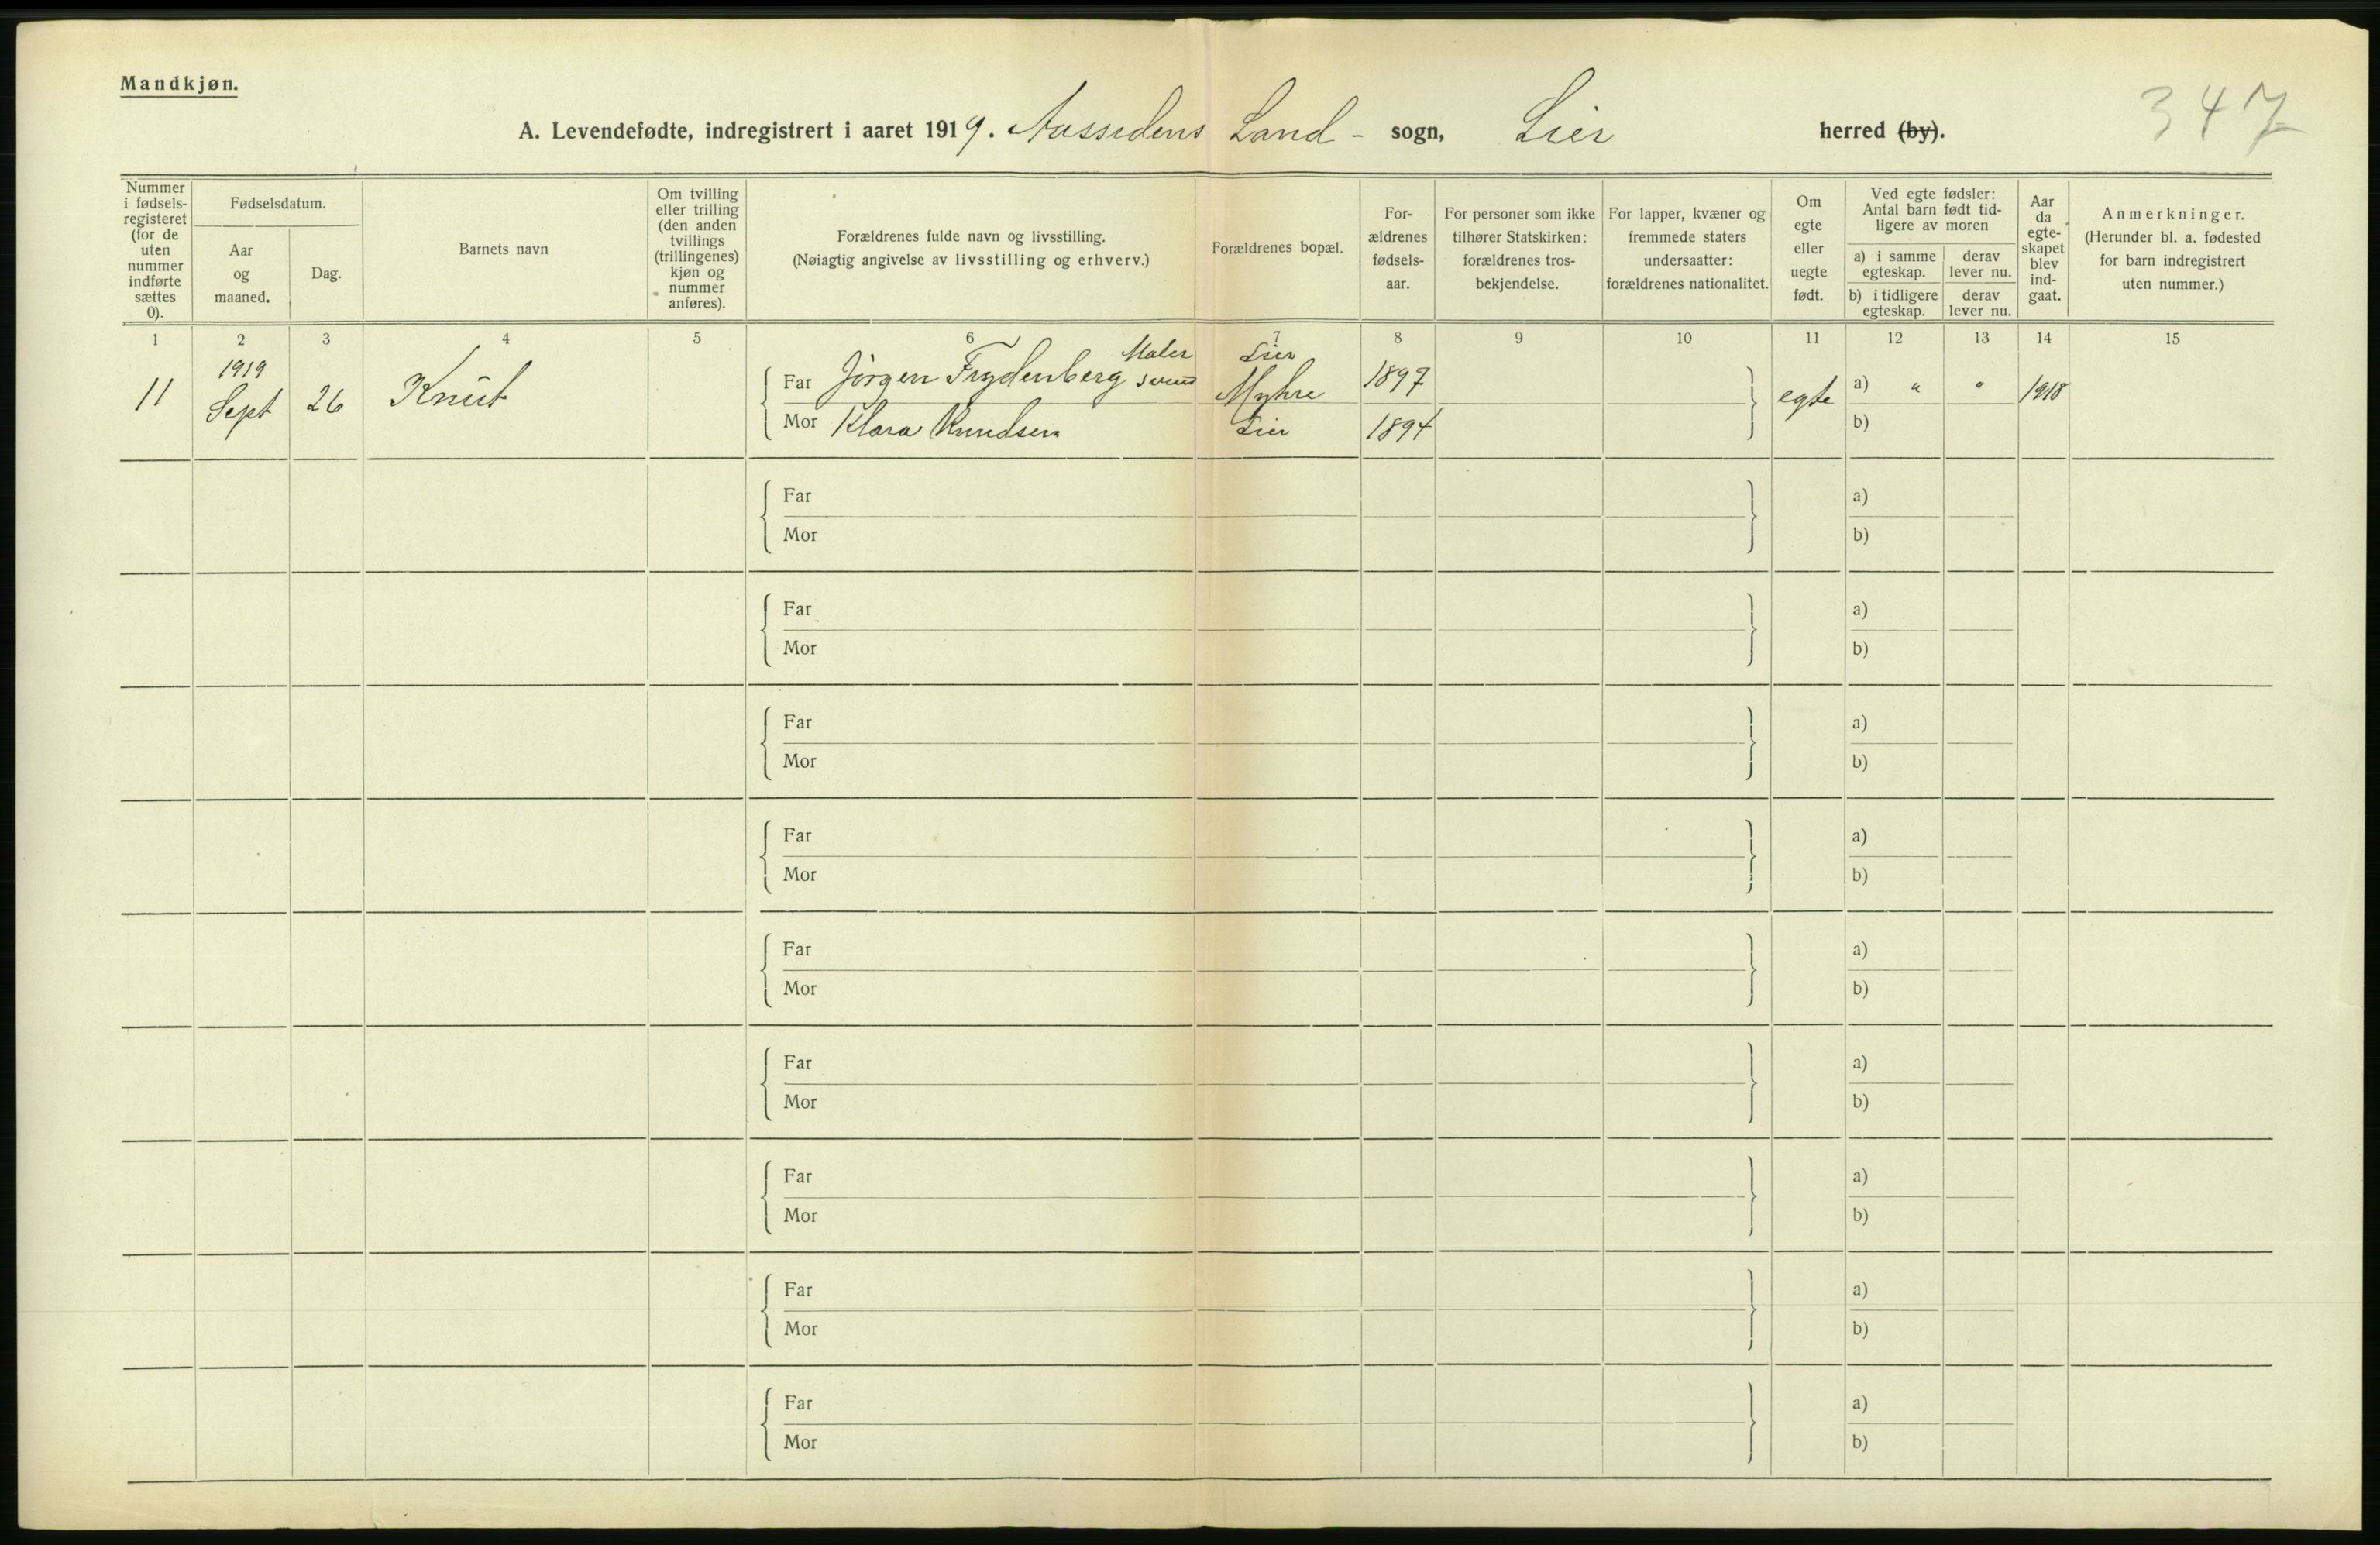 Mandkjøn.
A. Levendefødte, indregistrert i aaret 1919. Aassidens Land- sogn, Lier herred (by).
347
Nummer i fødsels-registeret (for de uten nummer indførte sættes 0).
Fødselsdatum.
Aar og maaned.
Dag.
Barnets navn
Om tvilling eller trilling (den anden tvillings (trillingenes) kjøn og nummer anføres).
Forældrenes fulde navn og livsstilling.
(Nøiagtig angivelse av livsstilling og erhverv.)
Forældrenes bopæl.
For-ældrenes fødsels-aar.
For personer som ikke tilhører Statskirken: forældrenes tros-bekjendelse.
For lapper, kvæner og fremmede staters undersaatter: forældrenes nationalitet.
Om egte eller uegte født.
Ved egte fødsler: Antal barn født tid-ligere av moren
a) i samme egteskap.
derav lever nu.
b) i tidligere egteskap.
derav lever nu.
Aar da egte-skapet blev ind-gaat.
Anmerkninger.
(Herunder bl. a. fødested for barn indregistrert uten nummer.)
1 2 3 4 5 6 7 8 9 10 11 12 13 14 15
11 1919 Sept 26 Knut
Far Jörgen Frydenberg Maler svend Lier Myhre 1897 egte a) " " 1918
Mor Klara Knudsen Lier 1894 b)
Far a)
Mor b)
Far a)
Mor b)
Far a)
Mor b)
Far a)
Mor b)
Far a)
Mor b)
Far a)
Mor b)
Far a)
Mor b)
Far a)
Mor b)
Far a)
Mor b)